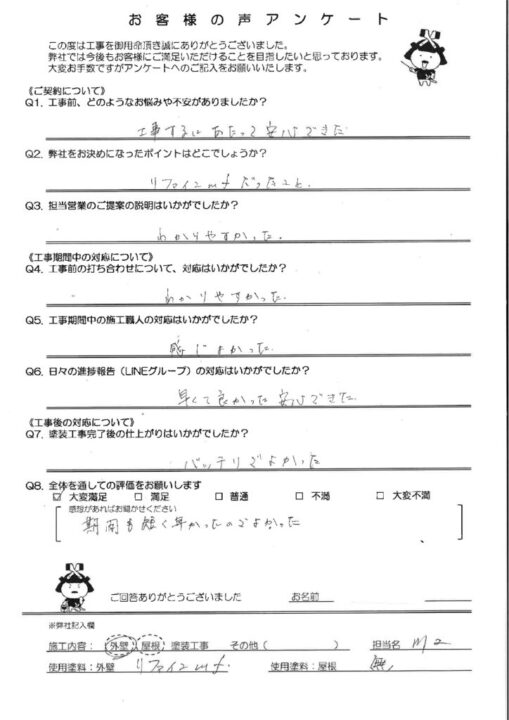 お客様の声アンケート
この度は工事を御用命頂き誠にありがとうございました。
弊社では今後もお客様にご満足いただけることを目指したいと思っております。
大変お手数ですがアンケートへのご記入をお願いいたします。
《ご契約について》
Q1. 工事前、どのようなお悩みや不安がありましたか?
工事するにあたって安心できた
Q2. 弊社をお決めになったポイントはどこでしょうか?
リファインMfだったこと.
Q3. 担当営業のご提案の説明はいかがでしたか?
わかりやすかった.
《工事期間中の対応について》
Q4. 工事前の打ち合わせについて、対応はいかがでしたか?
わかりやすかった.
Q5. 工事期間中の施工職人の対応はいかがでしたか?
感じよかった.
Q6. 日々の進捗報告(LINEグループ)の対応はいかがでしたか?
早くて良かった 安心できた.
《工事後の対応について》
Q7. 塗装工事完了後の仕上がりはいかがでしたか?
バッチリでよかった
Q8. 全体を通しての評価をお願いします
☑ 大変満足 □ 満足 □ 普通 □ 不満 □ 大変不満
感想があればお聞かせください
期間も短く早かったのでよかった
ご回答ありがとうございました お名前
※弊社記入欄
施工内容: 外壁・屋根 塗装工事 その他( ) 担当名
使用塗料:外壁 リファインMf. 使用塗料:屋根 無